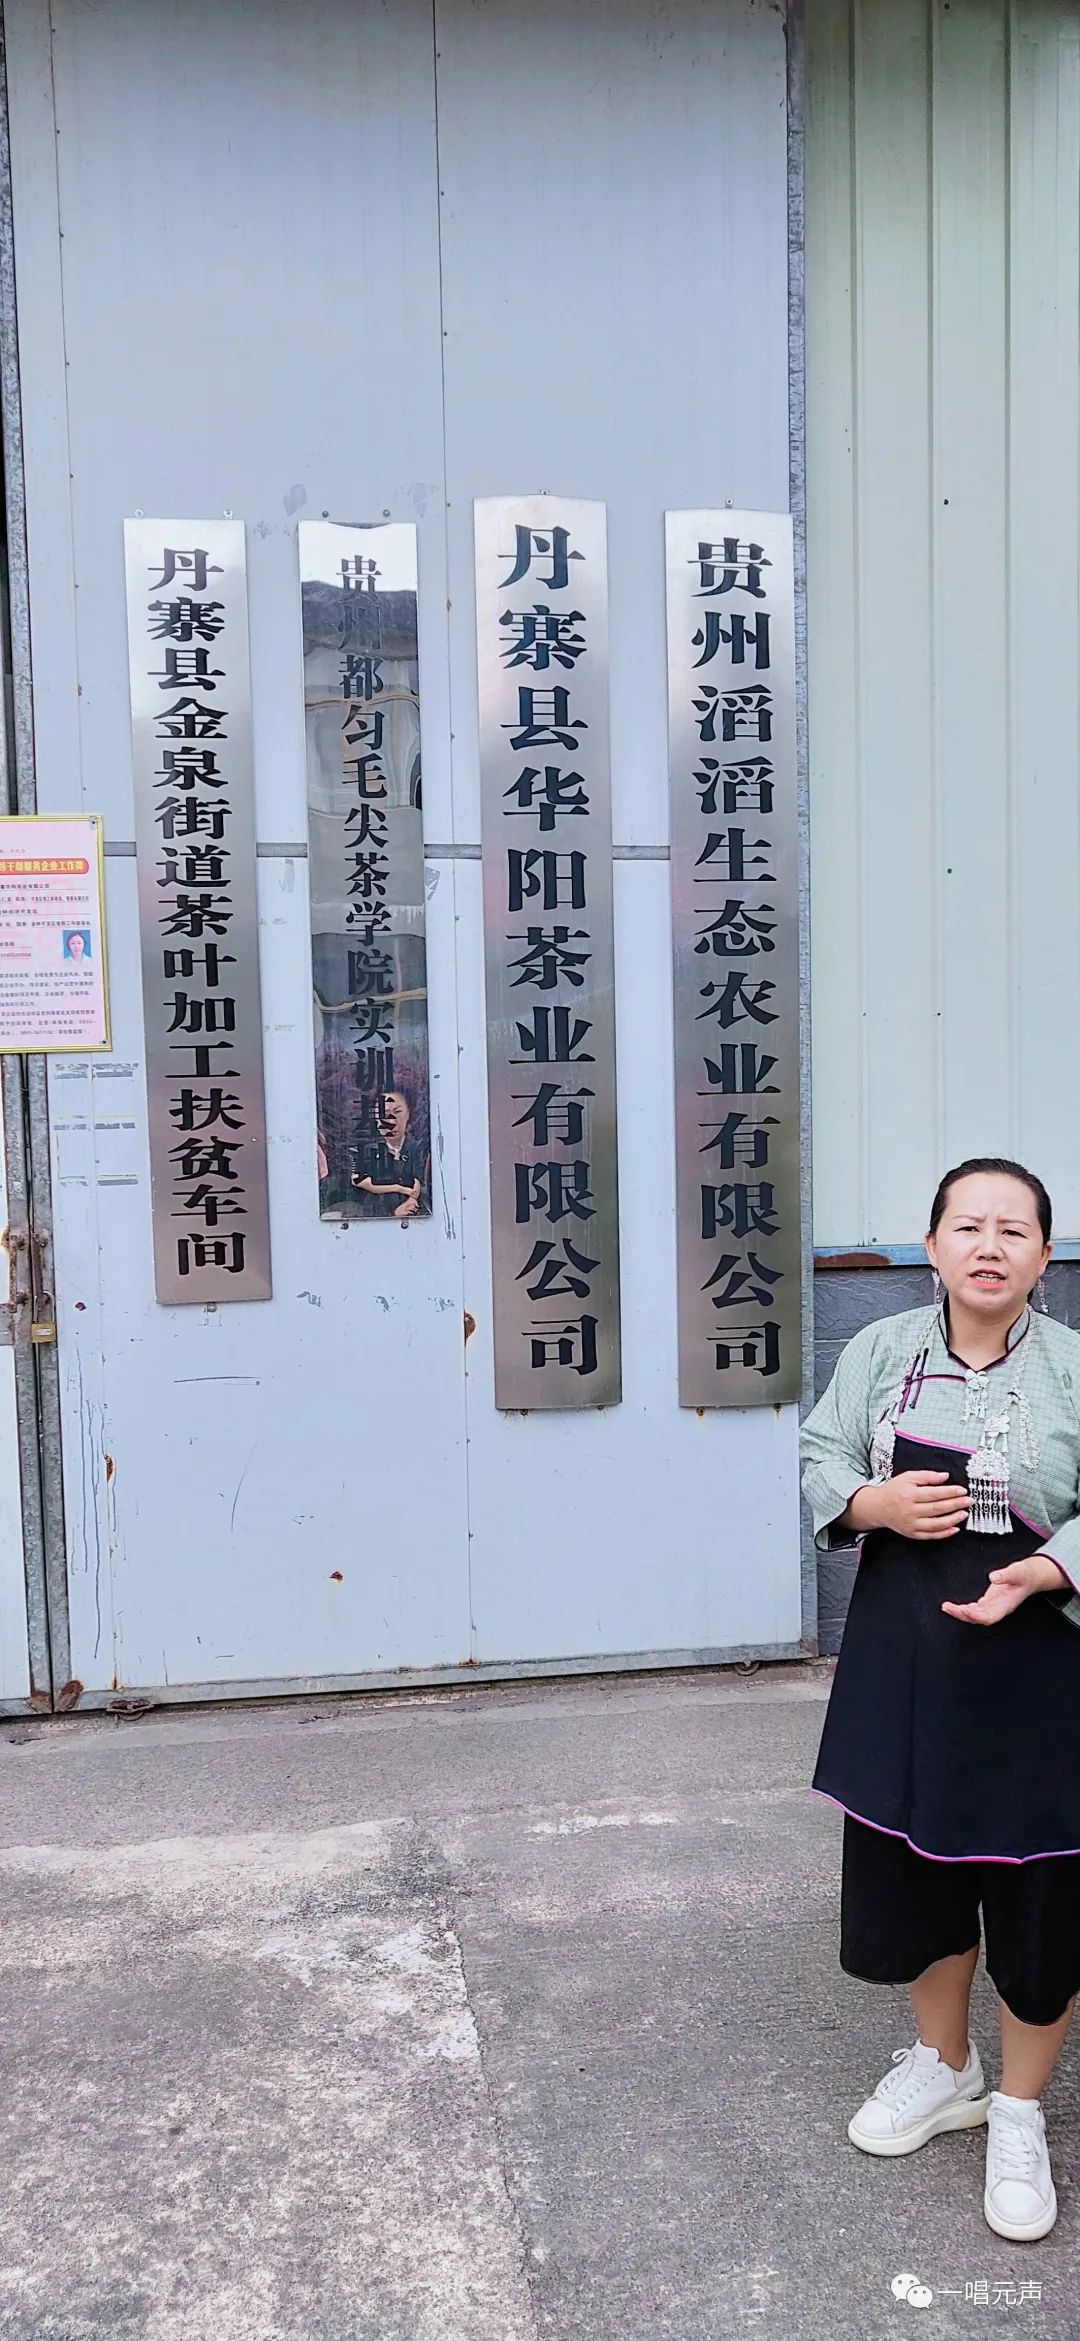 丹寨县金泉街道茶叶加工扶贫车间
贵州都匀毛尖茶学院实训基地
丹寨县华阳茶业有限公司
贵州滔滔生态农业有限公司
干部服务企业工作牌
一唱元声